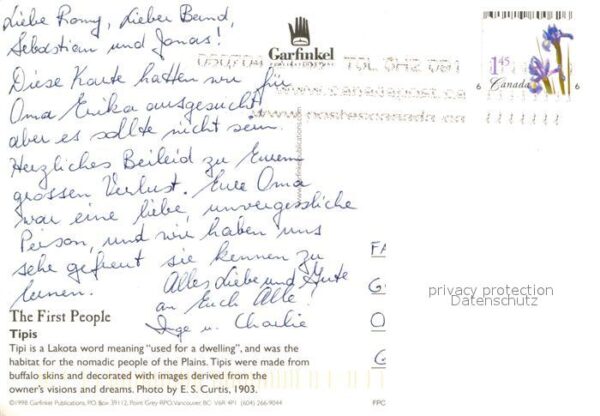 Liebe Romy, Lieber Bernd,
Sebastian und Jonas!
Diese Karte hatten wir für
Oma Erika ausgesucht
aber es sollte nicht sein.
Herzliches Beileid zu Eurem
grossen Verlust. Eure Oma
war eine liebe, unvergessliche
Person, und wir haben uns
sehr gefreut sie kennen zu
lernen.
Alles Liebe und Gute
an Euch Alle!
Inge u. Charlie
Garfinkel
PUBLICATIONS
1.45
Canada
6 6
www.canadapost.ca
www.postescanada.ca
garfinkelpublications.com
FA
G
O
G
privacy protection
Datenschutz
The First People
Tipis
Tipi is a Lakota word meaning "used for a dwelling", and was the
habitat for the nomadic people of the Plains. Tipis were made from
buffalo skins and decorated with images derived from the
owner's visions and dreams. Photo by E. S. Curtis, 1903.
©1998 Garfinkel Publications, PO Box 39112, Point Grey RPO, Vancouver BC V6R 4P1 (604) 266-9044
FPC